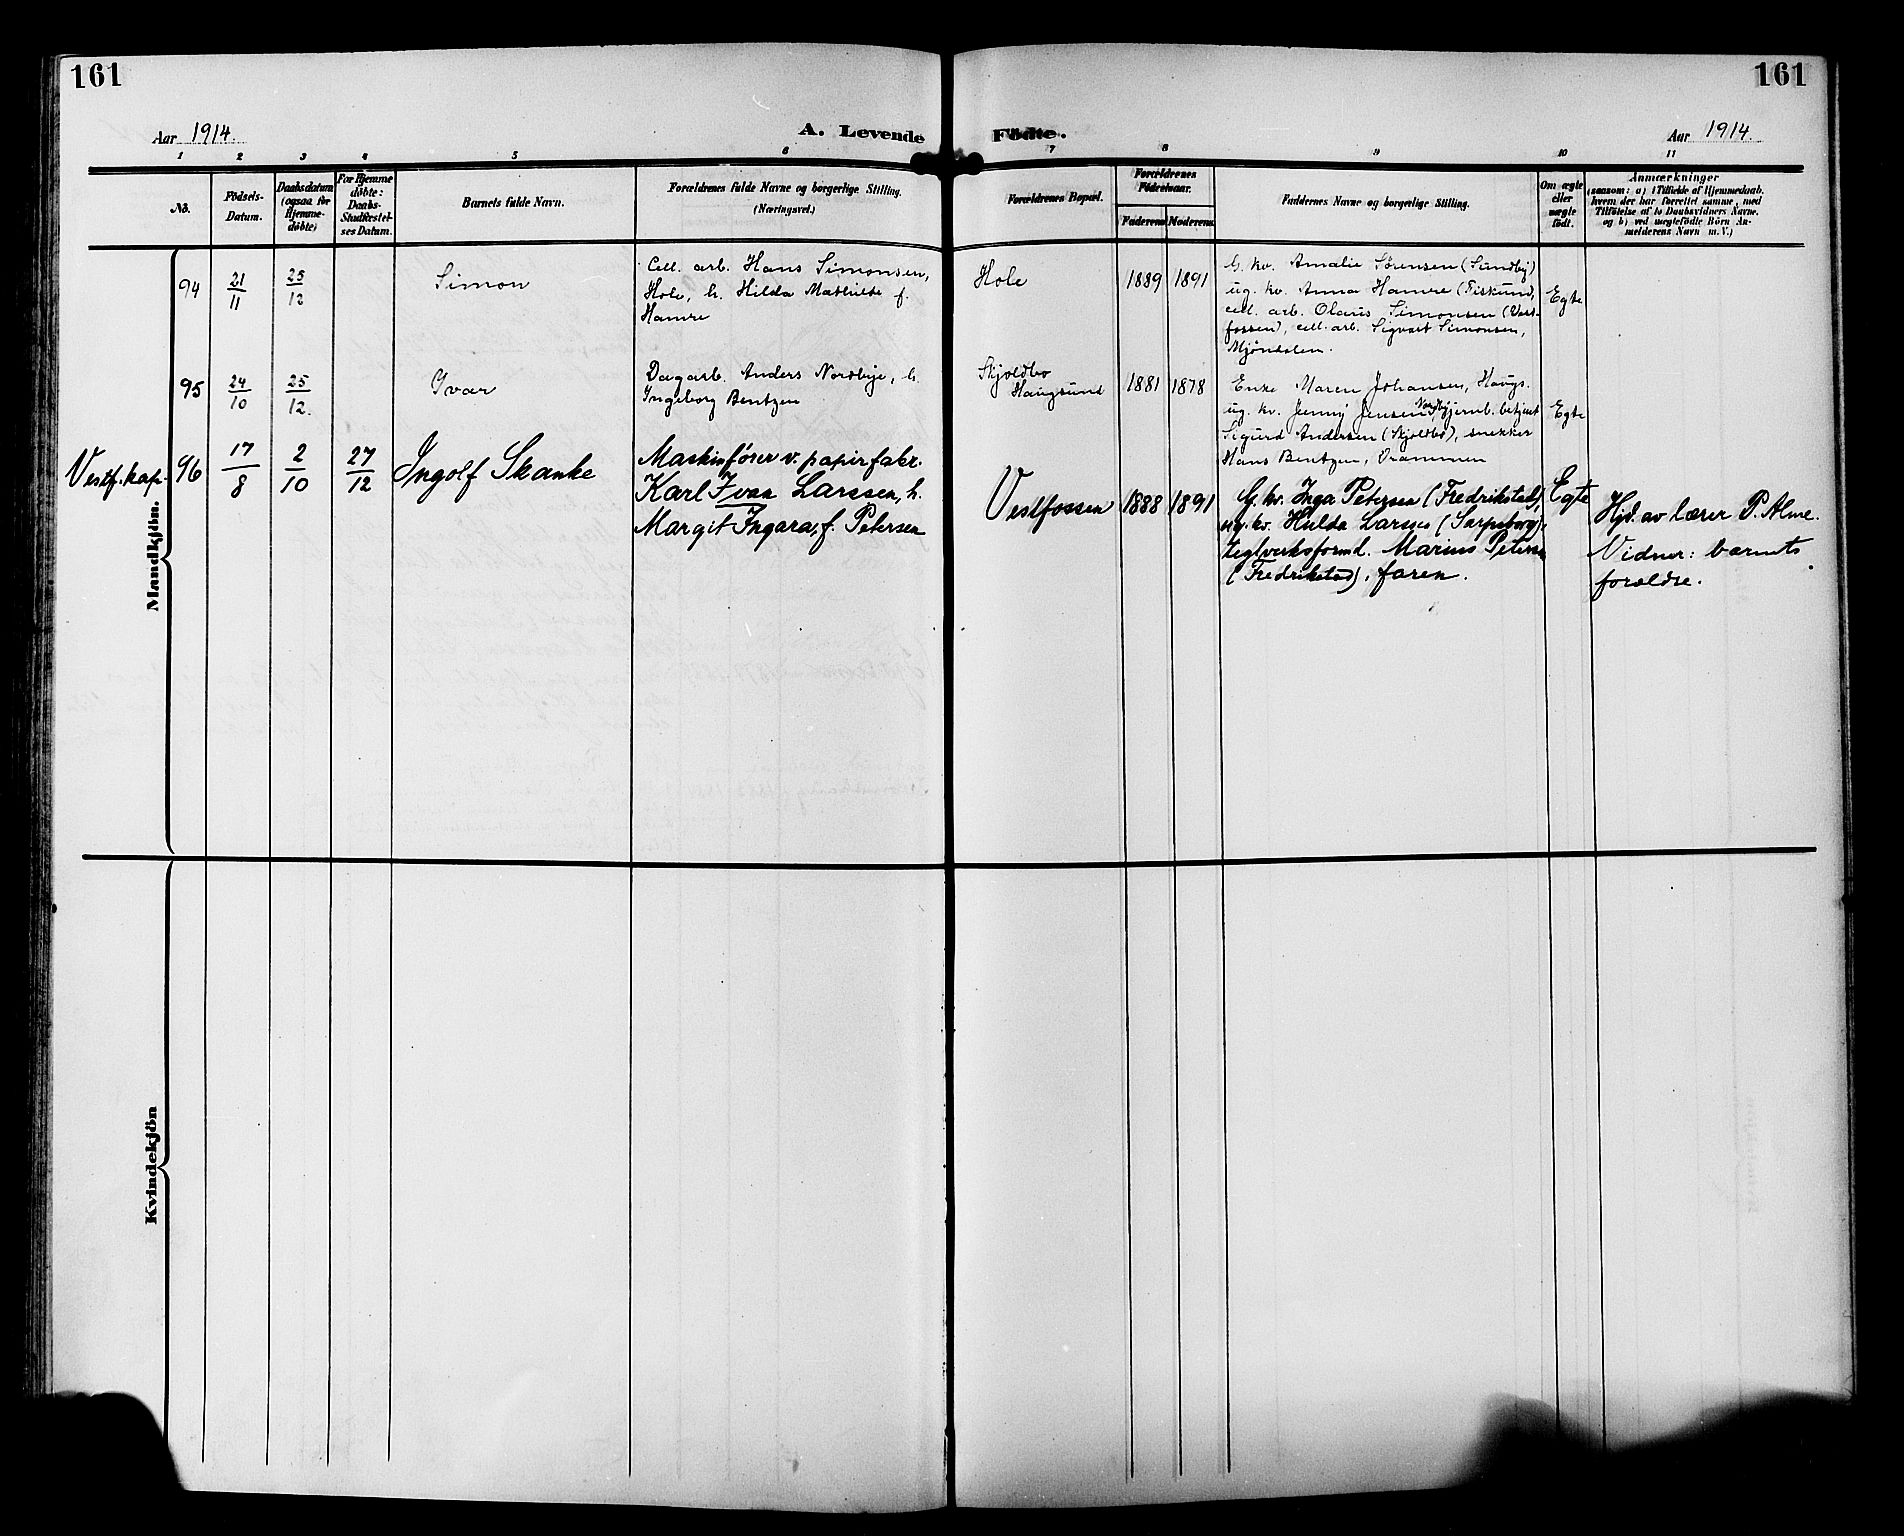 161
161
Aar 1914.
A. Levende Födte.
Aar 1914.
1 2 3 4 5 6 7 8 9 10 11
No.
Födsels-
Datum.
Daabsdatum
(ogsaa for
Hjemme-
döbte)
For Hjemme
döbte:
Daabs-
Stadfæstel-
ses Datum.
Barnets fulde Navn.
Forældrenes fulde Navne og borgerlige Stilling.
(Næringsvei.)
Forældrenes Bopæl.
Forældrenes
Födselsaar.
Faderens Moderens
Faddernes Navne og borgerlige Stilling.
Om ægte
eller
uægte
födt.
Anmærkninger
(saasom: a) i Tilfælde af Hjemmedaab.
hvem der har forrettet samme, med
Tilföielse af to Daabsvidners Navne.
og b) ved uægtefödte Börn An-
melderens Navn m. V.)
Mandkjön.
94
21/11
25/12
Simon
Cell. arb. Hans Simonsen,
Hole, h. Hilda Mathilde f.
Hamre
Hole
1889 1891
G. kv. Amalie Sørensen (Sundby)
ug. kv. Anna Hamre (Fiskum),
cell. arb. Olaus Simonsen (Vest-
fossen), cell. arb. Sigvart Simonsen,
Mjöndalen.
Egte
95
24/10
25/12.
Ivar
Dagarb. Anders Nordbye, h.
Ingeborg Bentzen
Skjoldbo
Haugsund
1881 1878
Enke Maren Johansen, Haugs.
ug. kv. Jenny Jensen, Nordby, jernb. betjent
Sigurd Andersen (Skjoldbo), snekker
Hans Bentzen, Drammen
Egte
Vestf. kap. 96
17/8
2/10
27/12
Ingolf Skanke
Maskinfører v. papirfabr.
Karl Ivan Larssen, h.
Margit Ingara, f. Petersen
Vestfossen
1888 1891
G. kv. Inga Petersen (Fredrikstad),
ug. kv. Hulda Larsen (Sarpsborg),
teglverksformd. Marius Petersen
(Fredrikstad), faren.
Egte
Hjd. av lærer P. Alme.
Vidner: barnets
forældre.
Kvindekjön